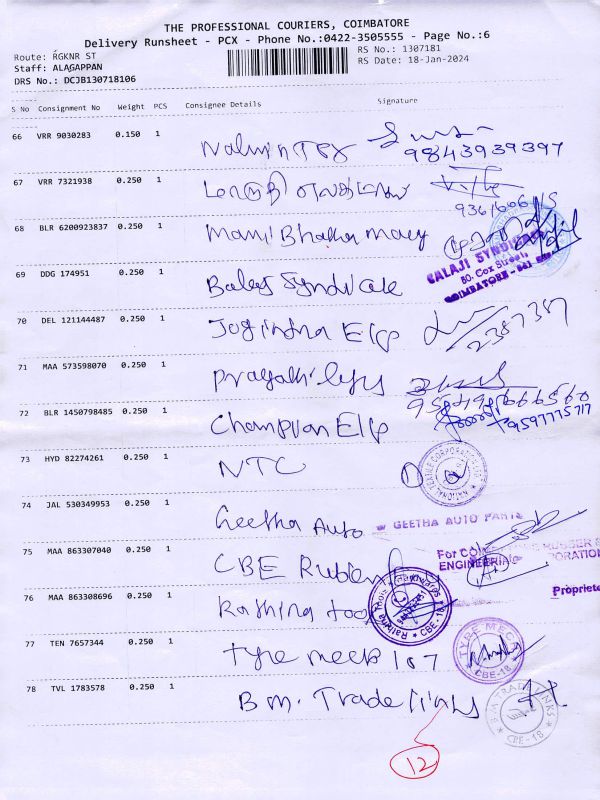 THE PROFESSIONAL COURIERS, COIMBATORE
Delivery Runsheet - PCX - Phone No.:0422-3505555 - Page No.:6
Route: RGKNR ST
RS No.: 1307181
Staff: ALAGAPPAN
RS Date: 18-Jan-2024
DRS No.: DCJB130718106
S No Consignment No Weight PCS Consignee Details Signature
66 VRR 9030283 0.150 1
9843939397
67 VRR 7321938 0.250 1
68 BLR 6200923837 0.250 1 Mani Bhaka
BALAJI SYNDICATE
80, Cox Street,
COIMBATORE
69 DDG 174951 0.250 1 Balaji Syndicate
70 DEL 121144487 0.250 1 Jogindra Elp 2387387
71 MAA 573598070 0.250 1
72 BLR 1450798485 0.250 1 Champion Elp 9597775717
73 HYD 82274261 0.250 1 NTC
74 JAL 530349953 0.250 1 Geetha Auto GEETHA AUTO PARTS
75 MAA 863307040 0.250 1 CBE Rubber
ENGINEERING
Proprietor
76 MAA 863308696 0.250 1 Rathina tools
CBE-18
77 TEN 7657344 0.250 1 tyre mech 107
TYRE MECH
CBE-18
78 TVL 1783578 0.250 1 B.m. Trade links
B M TRADE LINKS
CBE-18
12